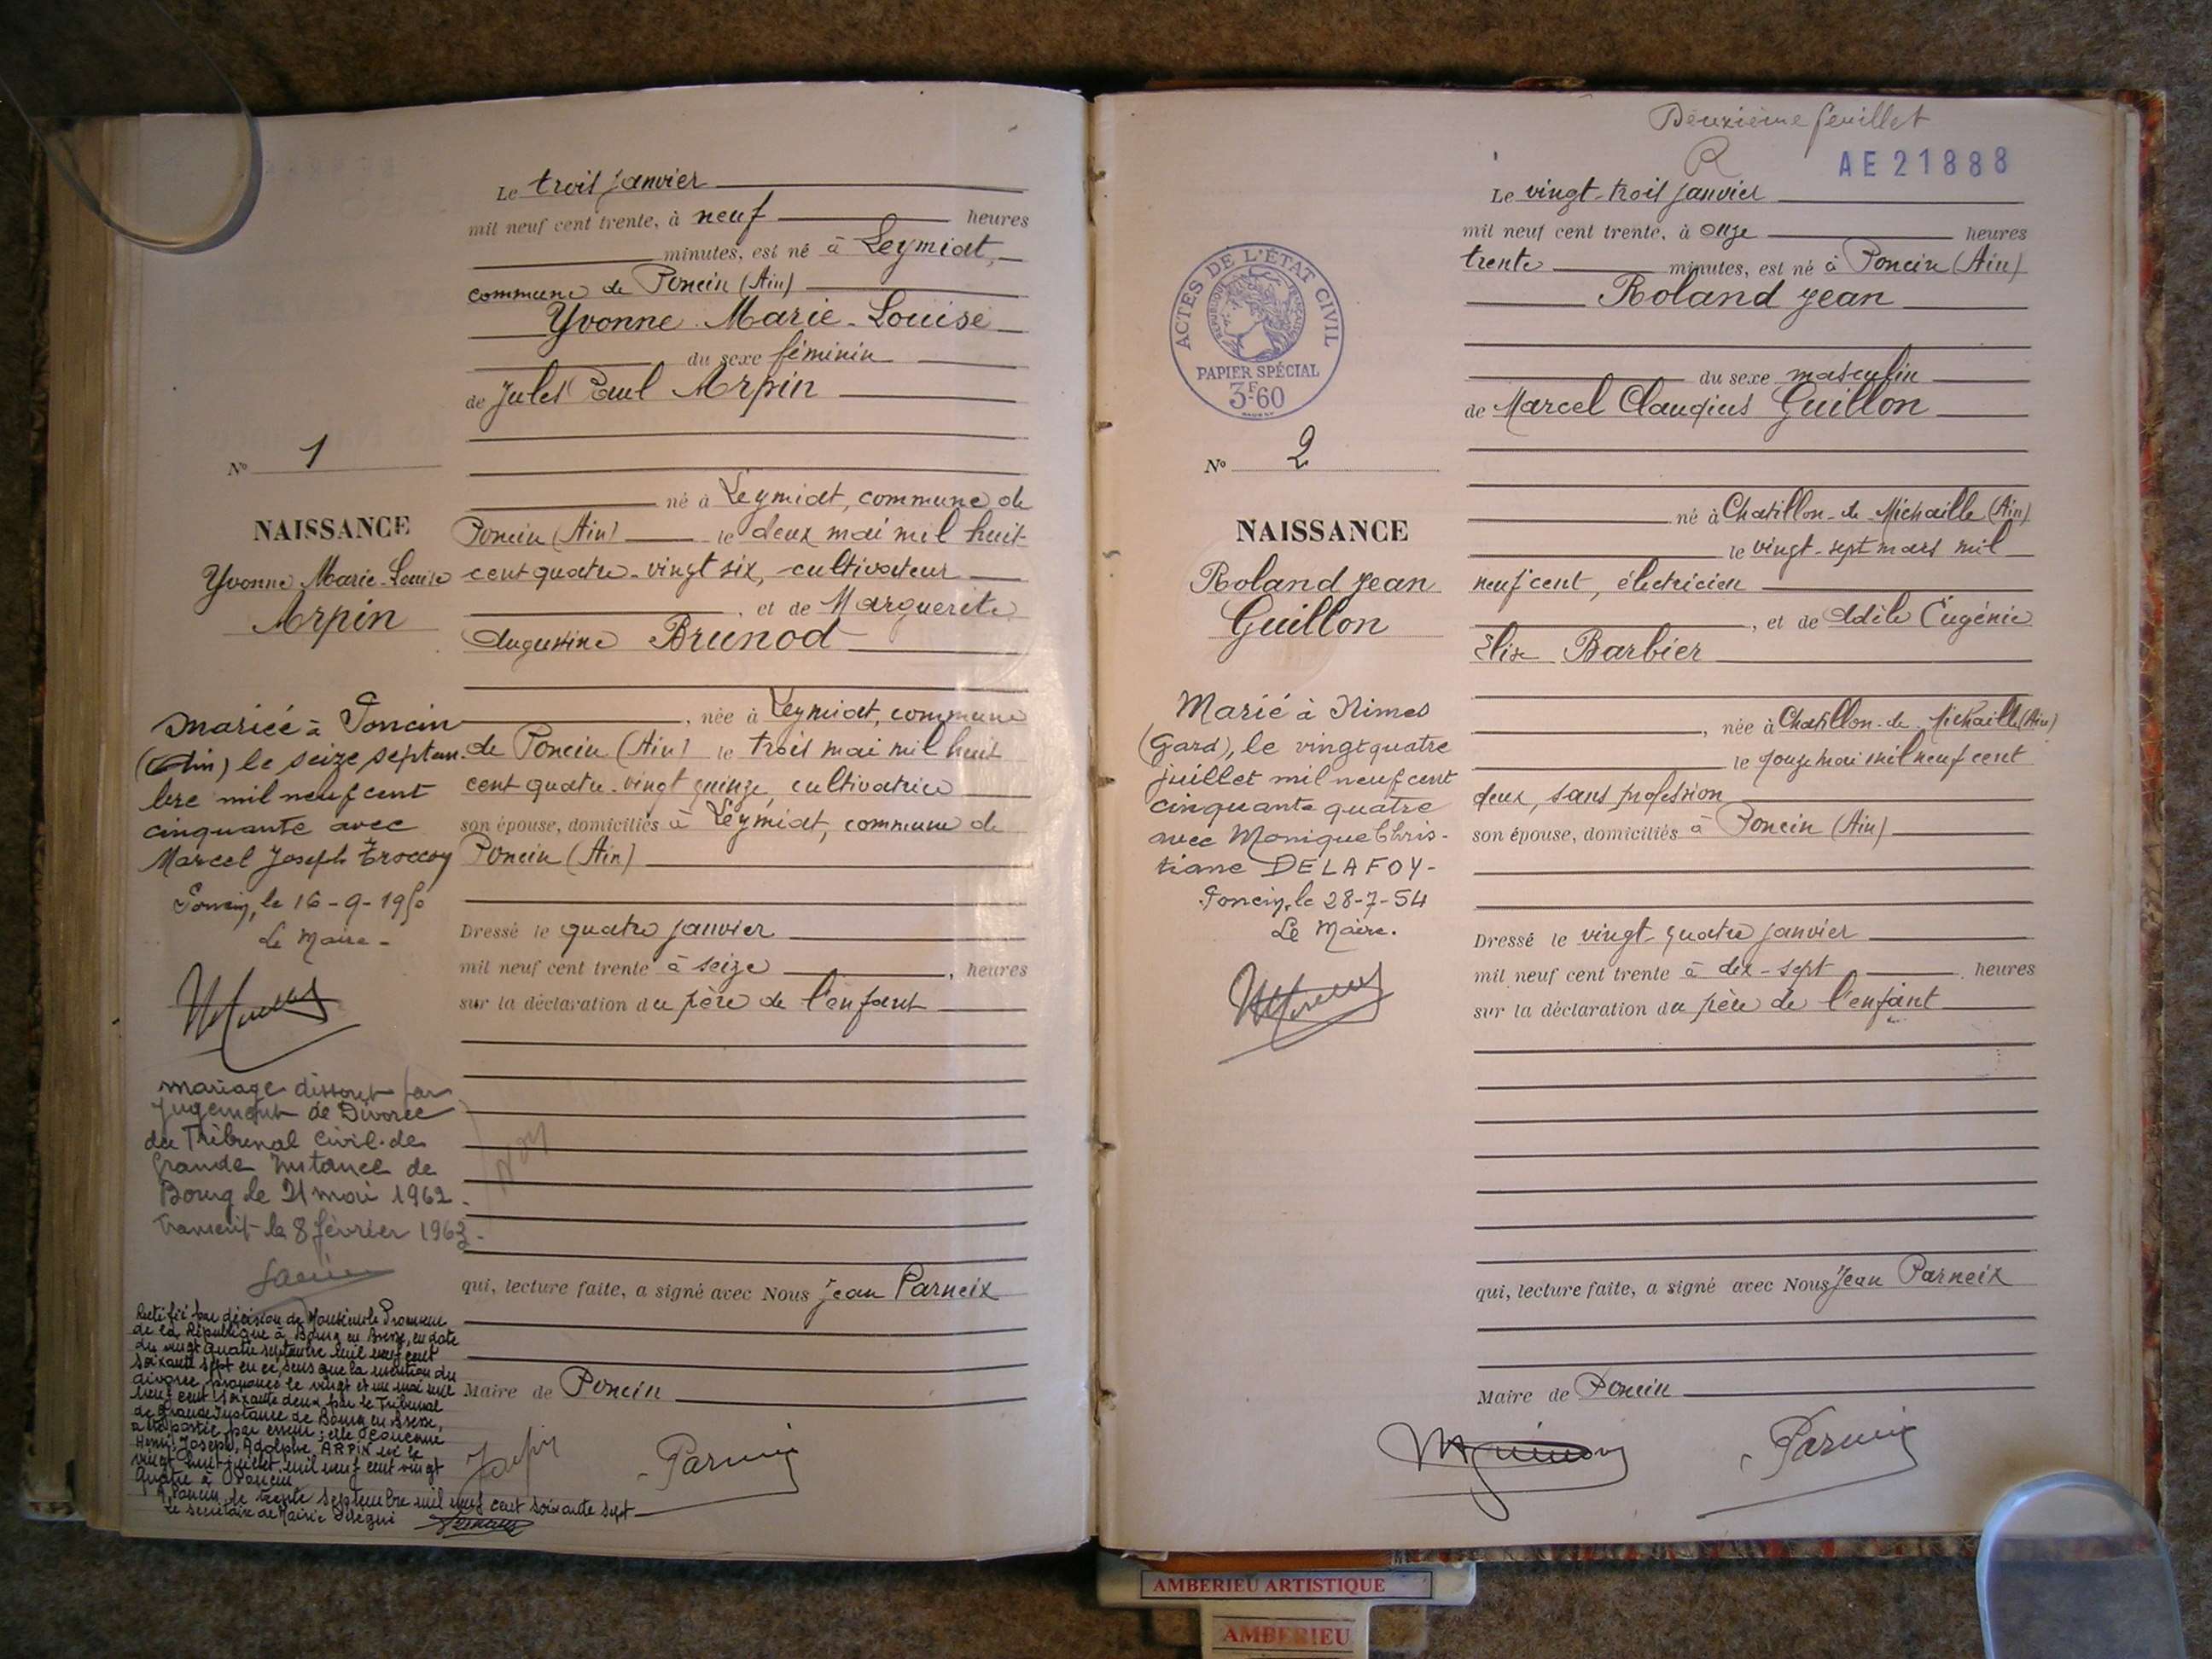 Le trois janvier
mil neuf cent trente, à neuf heures
minutes, est né à Leymiat,
commune de Poncin (Ain)
Yvonne Marie-Louise
du sexe féminin
de Jules Paul Arpin
né à Leymiat, commune de
Poncin (Ain) le deux mai mil huit
cent quatre-vingt six, cultivateur
, et de Marguerite
Augustine Brunod
, née à Leymiat, commune
de Poncin (Ain) le trois mai mil huit
cent quatre-vingt quinze, cultivatrice
son épouse, domiciliés à Leymiat, commune de
Poncin (Ain)
Dressé le quatre janvier
mil neuf cent trente à seize , heures
sur la déclaration du père de l'enfant
qui, lecture faite, a signé avec Nous Jean Parneix
Maire de Poncin
Parneix
No 1
NAISSANCE
Yvonne Marie-Louise
Arpin
Mariée à Poncin
(Ain) le seize septem-
bre mil neuf cent
cinquante avec
Marcel Joseph Troccoy
Poncin, le 16-9-1950
Le Maire-
mariage dissout par
Jugement de Divorce
du Tribunal Civil de
Grande Instance de
Bourg le 21 mai 1962.
Transcrit le 8 février 1963.
Non
Rectifié par décision de Monsieur le Procureur
de la République à Bourg en Bresse, en date
du vingt quatre septembre mil neuf cent
soixante sept en ce sens que la mention du
divorce prononcé le vingt et un mai mil
neuf cent soixante deux par le Tribunal
de Grande Instance de Bourg en Bresse,
a été portée par erreur ; elle concerne
Henri, Joseph, Adolphe ARPIN né le
vingt huit juillet mil neuf cent vingt
quatre à Poncin
A Poncin, le trente septembre mil neuf cent soixante sept
Le secrétaire de Mairie délégué
Deuxième feuillet
R
AE 21888
ACTES DE L'ÉTAT CIVIL
RÉPUBLIQUE FRANÇAISE
PAPIER SPÉCIAL
3F60
Le vingt-trois janvier
mil neuf cent trente, à onze heures
trente minutes, est né à Poncin (Ain)
Roland Jean
du sexe masculin
de Marcel Claudius Guillon
né à Chatillon-de-Michaille (Ain)
le vingt-sept mars mil
neuf cent, électricien
, et de Adèle Eugénie
Elise Barbier
, née à Chatillon-de-Michaille (Ain)
le douze mai mil neuf cent
deux, sans profession
son épouse, domiciliés à Poncin (Ain)
Dressé le vingt-quatre janvier
mil neuf cent trente à dix-sept heures
sur la déclaration du père de l'enfant
qui, lecture faite, a signé avec Nous Jean Parneix
Maire de Poncin
Parneix
No 2
NAISSANCE
Roland Jean
Guillon
Marié à Nimes
(Gard), le vingt quatre
juillet mil neuf cent
cinquante quatre
avec Monique Chris-
tiane DELAFOY-
Poncin, le 28-7-54
Le Maire.
AMBERIEU ARTISTIQUE
AMBERIEU